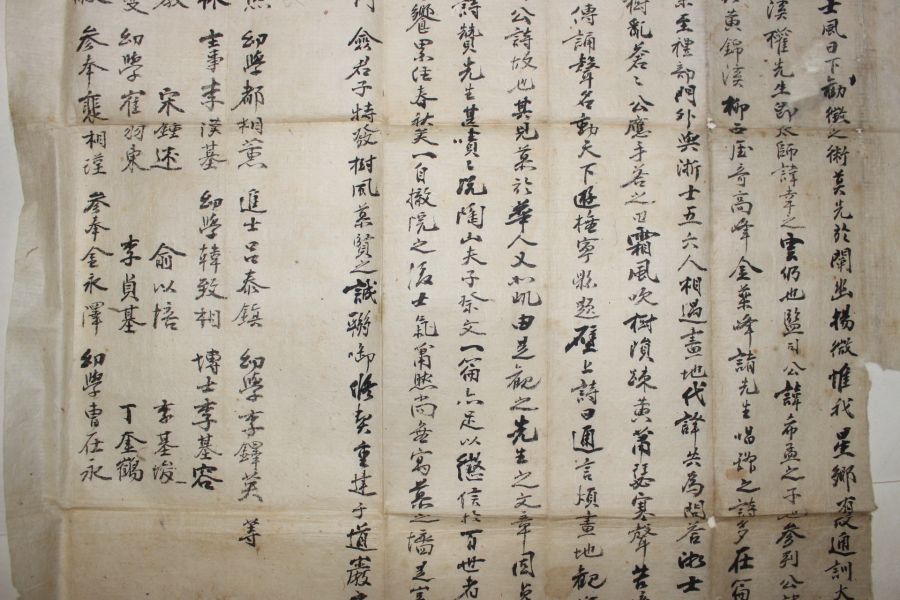 士風日下勸徵之術莫先於闡幽揚微惟我星鄉有通訓大
溪權先生即太師諱幸之雲仍也監司公諱希孟之子也參判公諱
黃錦溪柳西厓奇高峰金藥峰諸先生唱酬之詩多在篇
京至禮部門外與浙士五六人相遇畫地代譯共為問答浙士
樹亂蒼々公應手答之曰霜風吹樹隕疎黃蕭瑟寒聲
傳誦聲名動天下遊撫寧縣題壁上詩曰通言煩畫地觀
公詩故也其見慕於華人又如此由是觀之先生之文章固
詩贊先生甚嘖々院陶山夫子祭文一篇亦足以徵信於百世者
饗累注春秋矣一自撤院之後士氣蕭然尚無寓慕之墻是豈
僉君子特發樹風慕賢之誠聯御修契重建于道巖
幼學都相薰 進士呂泰鎮 幼學李鐸英 等
士事李漢基 幼學韓致相 博士李基容
宋鍾述 俞以培 李基峻
幼學崔羽東 李貞基 丁奎鶴
參奉裴相瑾 參奉金永澤 幼學曺在永